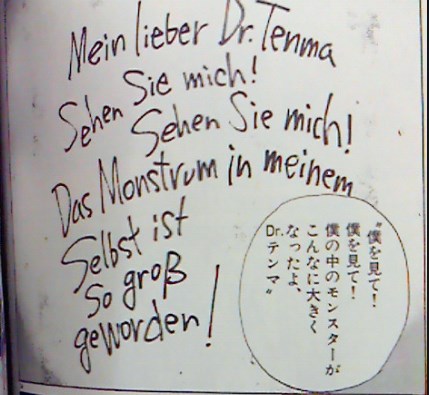 Mein lieber Dr. Tenma
Sehen Sie mich!
Sehen Sie mich!
Das Monstrum in meinem
Selbst ist
so groß
geworden!
“僕を見て!
僕を見て!
僕の中のモンスターが
こんなに大きく
なったよ、
Dr.テンマ”